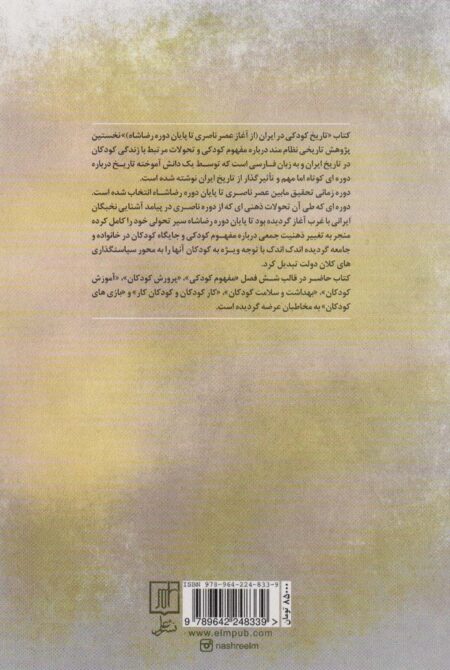 کتاب «تاریخ کودکی در ایران (از آغاز عصر ناصری تا پایان دوره رضاشاه)» نخستین
پژوهش تاریخی نظام مند درباره مفهوم کودکی و تحولات مرتبط با زندگی کودکان
در تاریخ ایران و به زبان فارسی است که توسط یک دانش آموخته تاریخ درباره
دوره ای کوتاه اما مهم و تأثیرگذار از تاریخ ایران نوشته شده است.
دوره زمانی تحقیق مابین عصر ناصری تا پایان دوره رضاشاه انتخاب شده است.
دوره ای که طی آن تحولات ذهنی ای که از دوره ناصری در پیامد آشنایی نخبگان
ایرانی با غرب آغاز گردیده بود تا پایان دوره رضاشاه سیر تحولی خود را کامل کرده
منجر به تغییر ذهنیت جمعی درباره مفهوم کودکی و جایگاه کودکان در خانواده و
جامعه گردیده اندک اندک با توجه ویژه به کودکان آنها را به محور سیاستگذاری
های کلان دولت تبدیل کرد.
کتاب حاضر در قالب شش فصل «مفهوم کودکی»، «پرورش کودکان»، «آموزش
کودکان»، «بهداشت و سلامت کودکان»، «کار کودکان و کودکان کار» و «بازی های
کودکان» به مخاطبان عرضه گردیده است.
ISBN 978-964-224-833-9
9 789642 248339
۸۵۰۰۰ تومان
نشر علم
www.elmpub.com
nashreelm